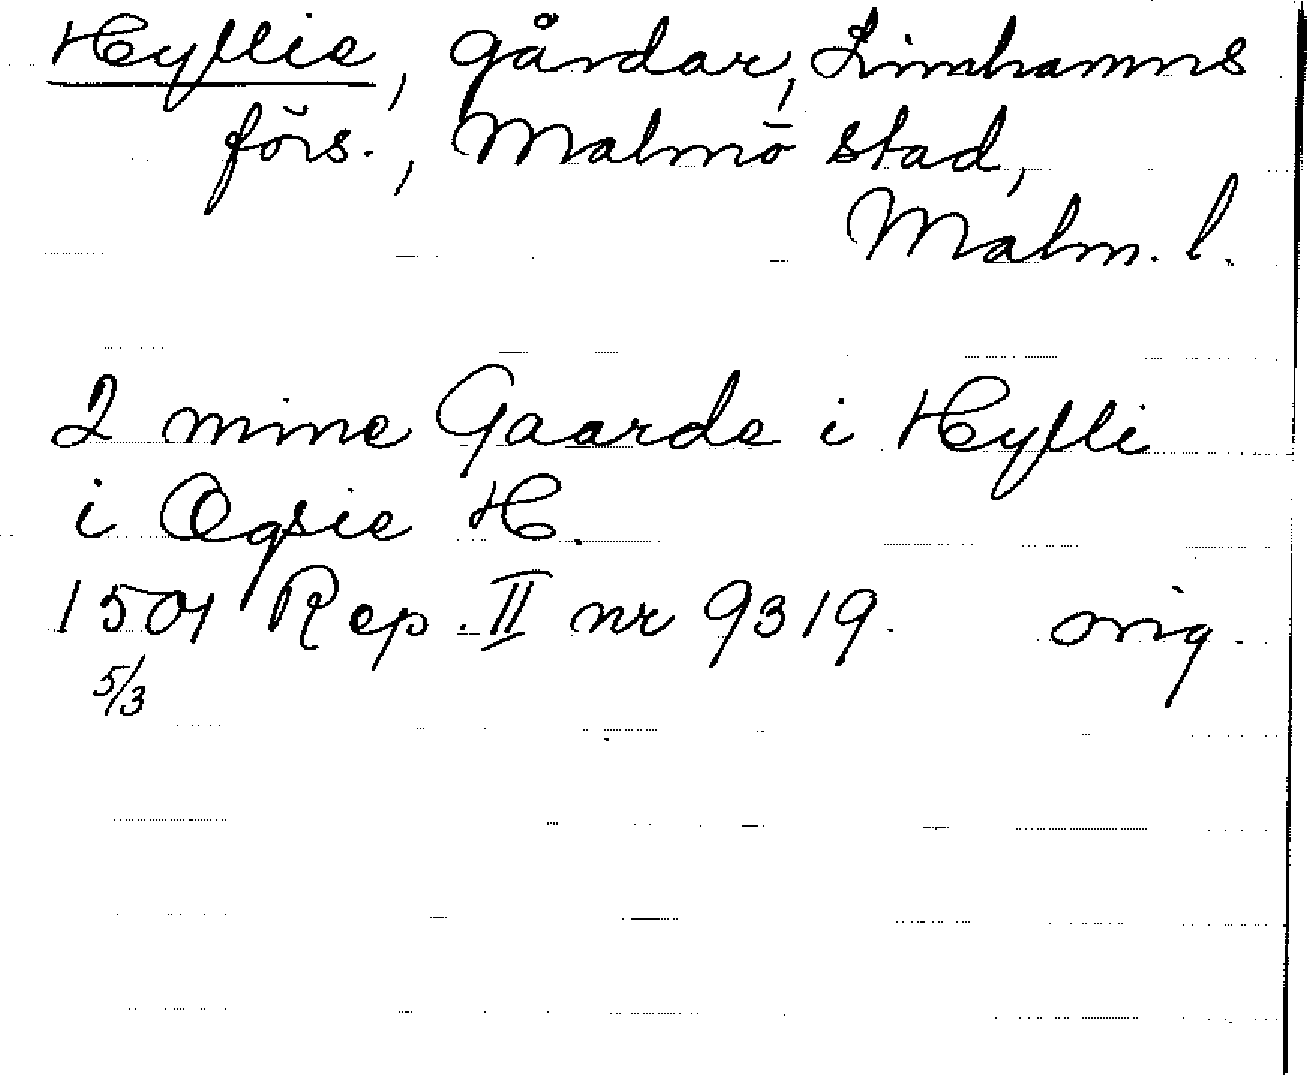 Hyllie, gårdar, Limhamns
förs., Malmö stad,
Malm. l.
2 mine Gaarde i Hylli
i Oxsie H.
1501 Rep. II nr 9319. orig.
5/3